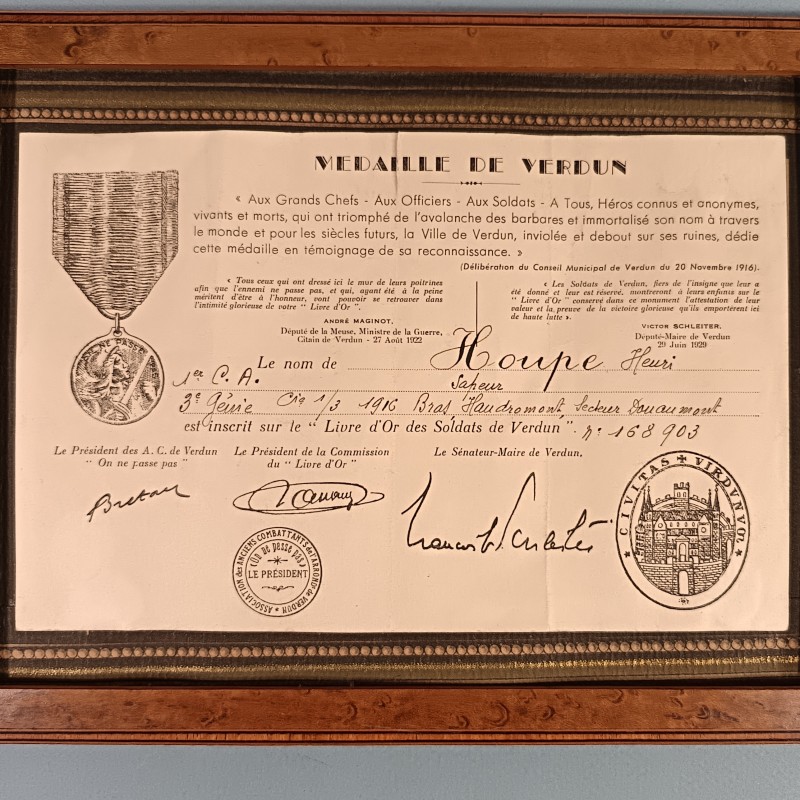 MEDAILLE DE VERDUN
« Aux Grands Chefs - Aux Officiers - Aux Soldats - A Tous, Héros connus et anonymes,
vivants et morts, qui ont triomphé de l'avalanche des barbares et immortalisé son nom à travers
le monde et pour les siècles futurs, la Ville de Verdun, inviolée et debout sur ses ruines, dédie
cette médaille en témoignage de sa reconnaissance. »
(Délibération du Conseil Municipal de Verdun du 20 Novembre 1916).
« Tous ceux qui ont dressé ici le mur de leurs poitrines
afin que l'ennemi ne passe pas, et qui, ayant été à la peine
méritent d'être à l'honneur, vont pouvoir se retrouver dans
l'intimité glorieuse de votre " Livre d'Or ".
ANDRÉ MAGINOT,
Député de la Meuse, Ministre de la Guerre,
Citain de Verdun - 27 Août 1922
« Les Soldats de Verdun, fiers de l'insigne que leur a
été donné et leur est réservé, montreront à leurs enfants sur le
" Livre d'Or " conservé dans ce monument l'attestation de leur
valeur et la preuve de la victoire glorieuse qu'ils emportèrent ici
de haute lutte ».
VICTOR SCHLEITER,
Député-Maire de Verdun
29 Juin 1929
ON NE PASSE PAS
Le nom de Houpe Henri
1er C. A. Sapeur
3e Génie Cie 1/3 1916 Bras Haudromont Secteur Douaumont
est inscrit sur le " Livre d'Or des Soldats de Verdun ". n° 168 903
Le Président des A. C. de Verdun
" On ne passe pas "
Le Président de la Commission
du " Livre d'Or "
Le Sénateur-Maire de Verdun,
ASSOCIATION des ANCIENS COMBATTANTS de l'ARROND' de VERDUN
"On ne passe pas"
LE PRÉSIDENT
CIVITAS VIRDVNVM